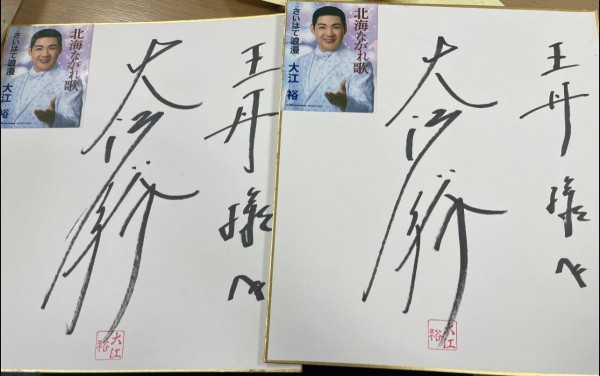 北海ながれ歌
さいはて浪漫
大江 裕
王丹様へ
大江裕
大江
裕
北海ながれ歌
さいはて浪漫
大江 裕
王丹様へ
大江裕
大江
裕